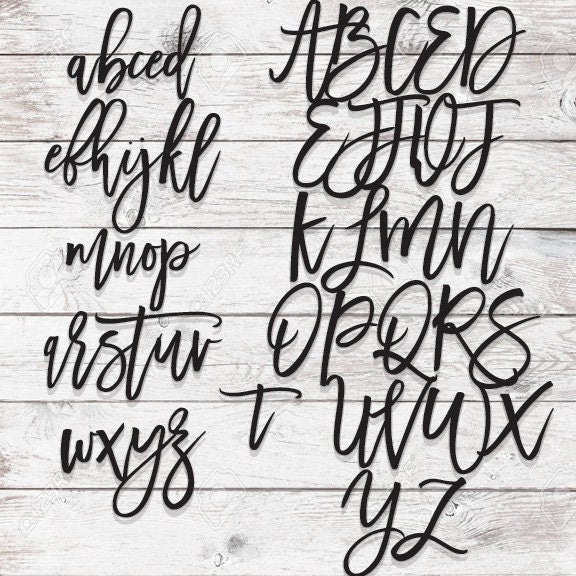 abced
efhijkl
mnop
qrstuv
wxyz
ABCED
KLMN
OPQRS
T UVWX
YZ
123RF